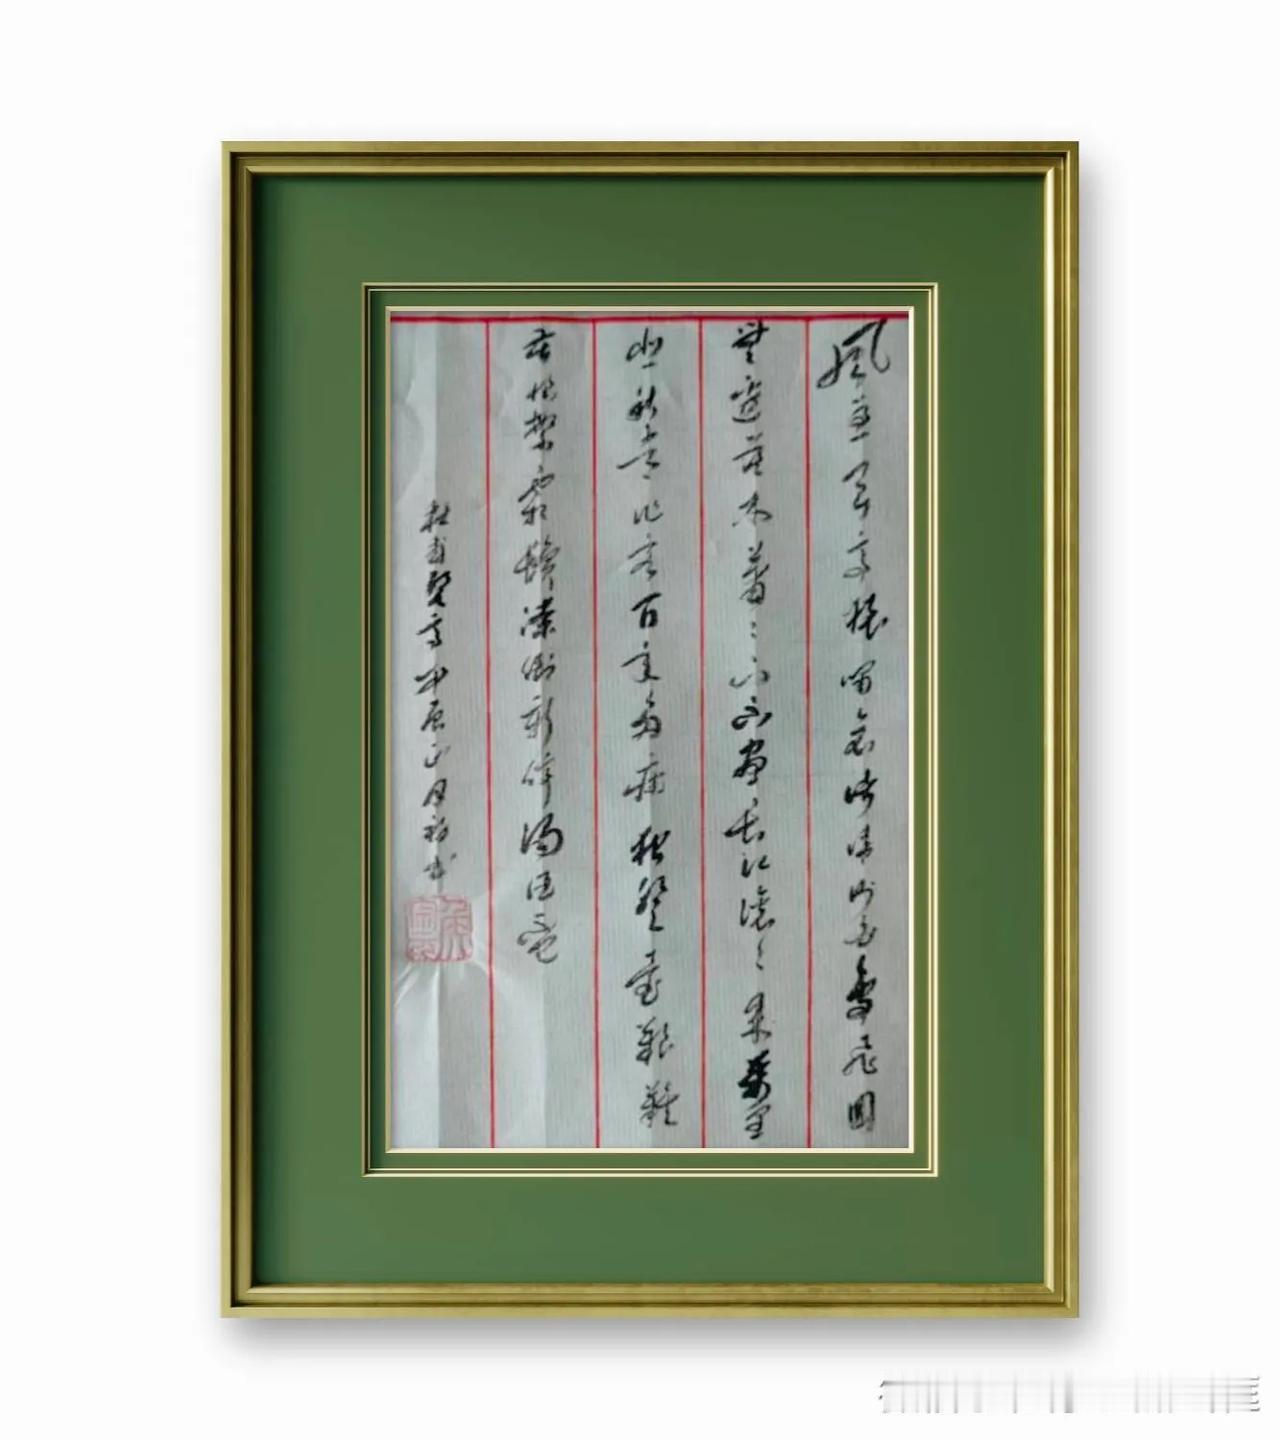 風急天高猿嘯哀渚清沙白鳥飛回
無邊落木蕭々下不盡長江滾々來萬里
悲秋常作客百年多病獨登臺艱難
苦恨繁霜鬢潦倒新停濁酒盃
杜甫登高甲辰正月書